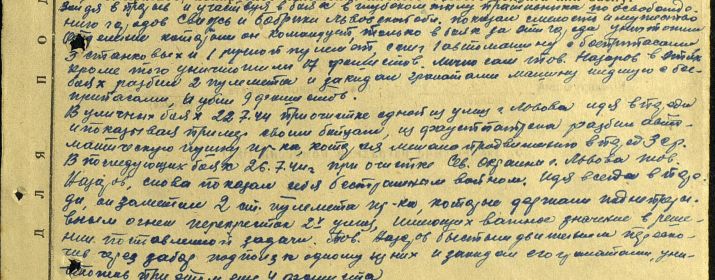 Зайдя в тыл и участвуя в боях в глубоком тылу противника по освобожде-
нию городов Свирж и Бобрки Львовской обл. показал смелость и мужество
отделение которым он командует, только в боях за эти города уничтожили
3 станковых и 1 ручной пулемет, сжег 1 автомашину с боеприпасами
кроме того уничтожили 17 фашистов. Лично сам тов. Назаров в этих
боях разбил 2 пулемета и закидал гранатами машину идущую с бое-
припасами, и убил 9 фашистов.
В уличных боях 22.7.44 при очистке одной из улиц г. Львова идя впереди
и показывая пример своим бойцам, из фаустпатрона разбил авто-
матическую пушку пр-ка, которая мешала продвижению вперед
В последующих боях 26.7.44г при очистке Сев. Окраины г. Львова тов.
Назаров, снова показал себя бесстрашным воином. Идя всегда впере-
ди, он заметил 2 ст. пулемета пр-ка которые держали под
вным огнем перекресток 2х улиц, имеющих важное значение в реше-
нии поставленной задачи. Тов. Назаров быстрым движением переско-
чив через забор подполз к одному из них и закидал его гранатами, уни-
чтожив при этом еще 4 фашиста
ДЛЯ ПО